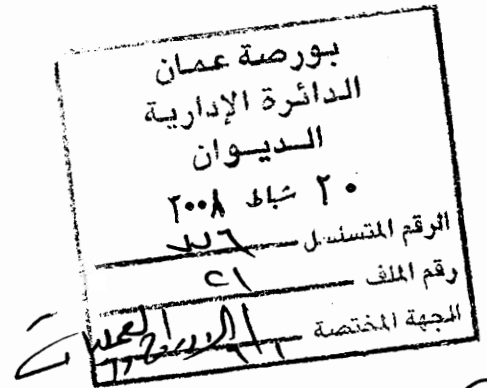 بورصة عمان
الدائرة الإدارية
الديوان
٢٠ شباط ٢٠٠٨
الرقم المتسلسل
رقم الملف ٢١
الجهة المختصة